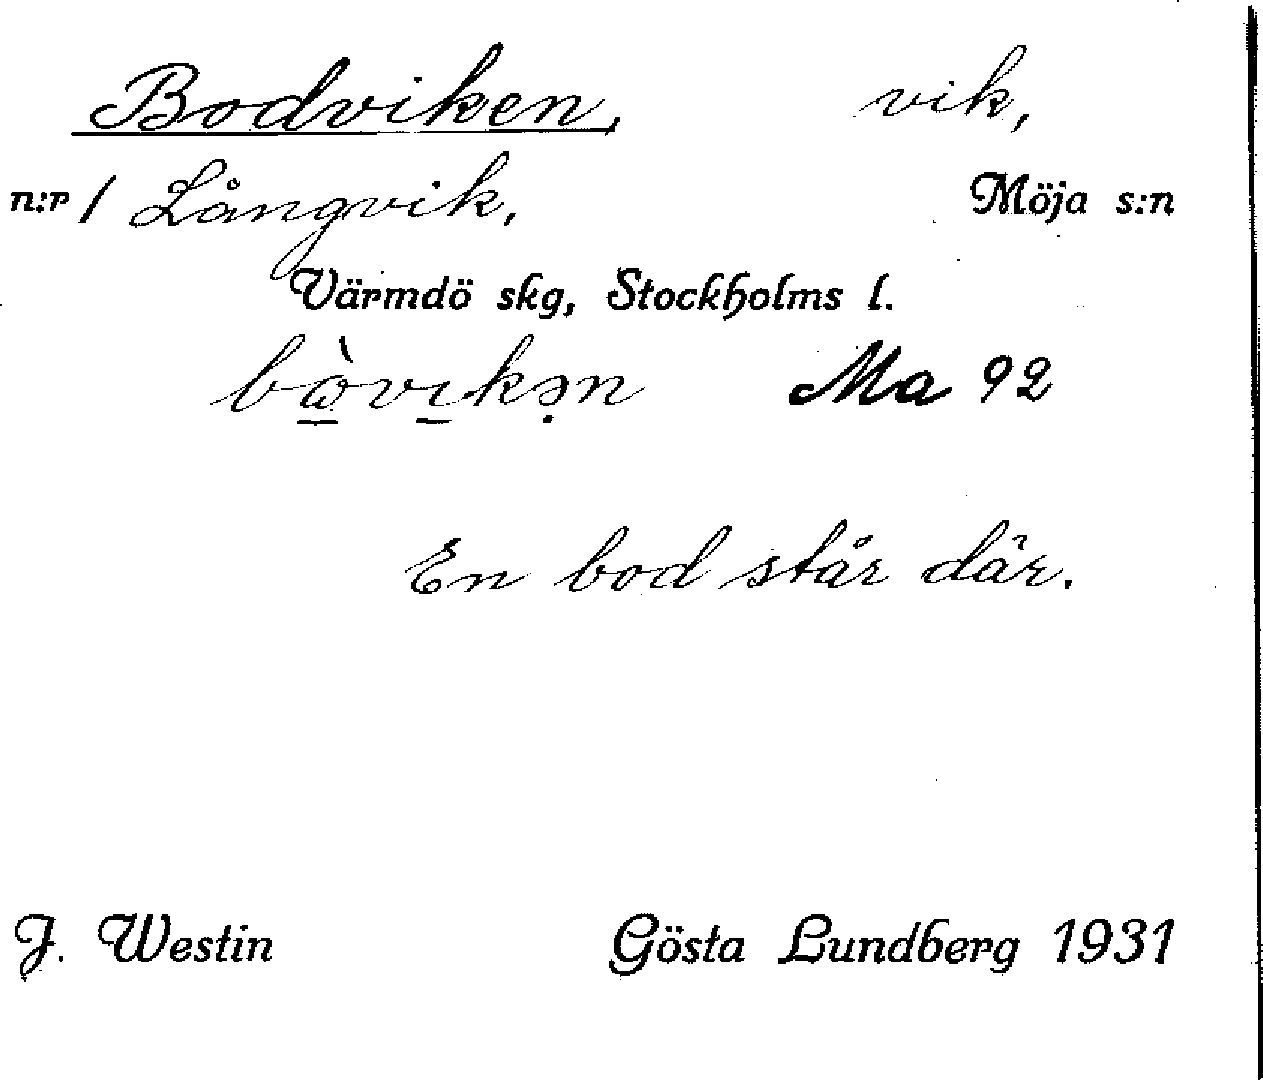 Bodviken, vik,
n:r 1 Långvik, Möja s:n
Värmdö skg, Stockholms l.
bὼ̲vι̲kə̣n Ma 92
En bod står där.
J. Westin Gösta Lundberg 1931